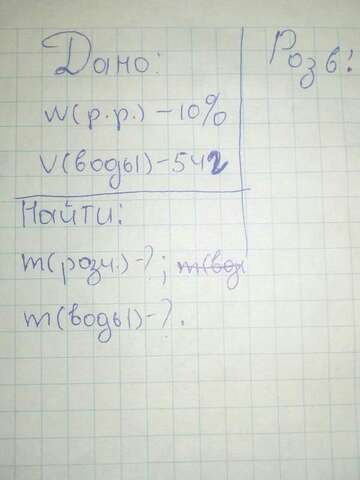 Дано:
Розв:
w(р.р.) - 10%
V(воды) - 542
Найти:
m(розч.) - ?; m(вод
m(воды) - ?.